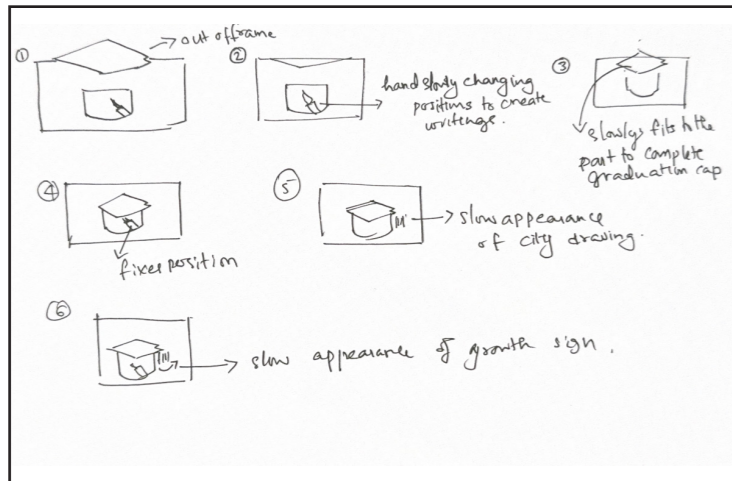 ① → out of frame
② hand slowly changing
positions to create
writings.
③
slowly fits to the
part to complete
graduation cap
④
fixes position
⑤ → slow appearance
of city drawing.
⑥
→ slow appearance of growth sign.